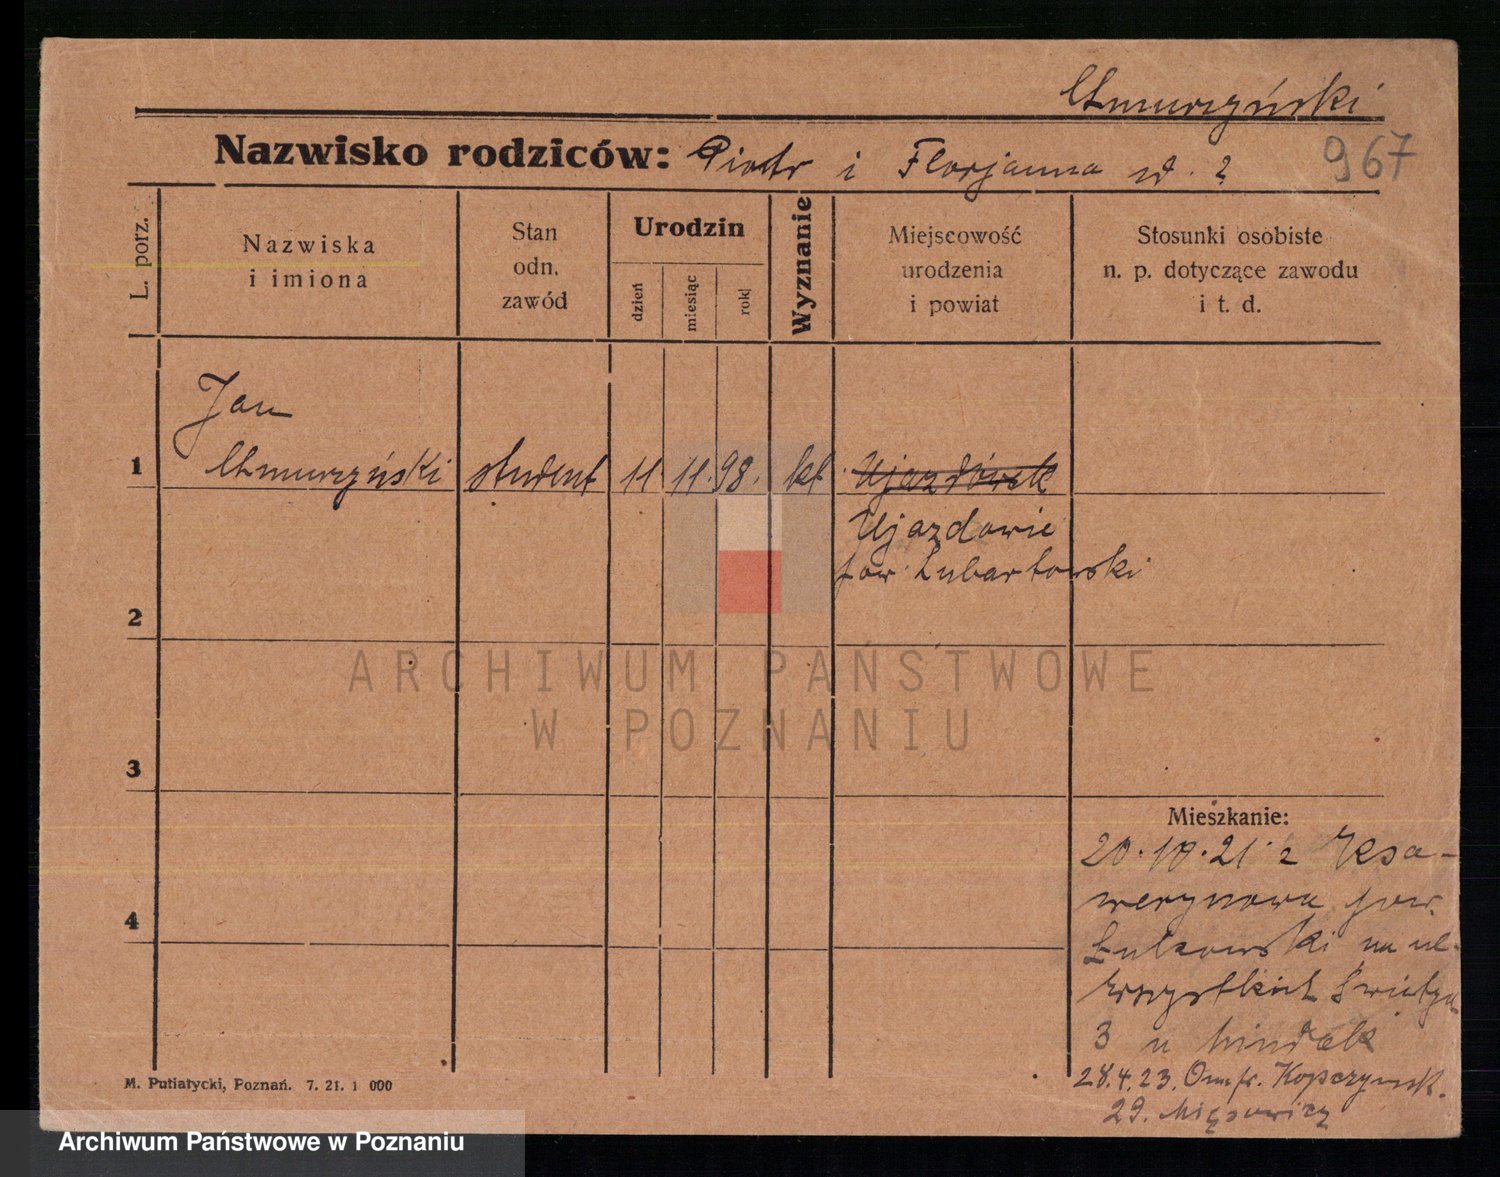 Chmurzyński
Nazwisko rodziców: Piotr i Florjanna zd. ?
967
L. porz.
Nazwiska
i imiona
Stan
odn.
zawód
Urodzin
dzień
miesiąc
rok
Wyznanie
Miejscowość
urodzenia
i powiat
Stosunki osobiste
n. p. dotyczące zawodu
i t. d.
Jan
1 Chmurzyński student 11 11. 98. kt Ujazdówek
Ujazdowie
pow. Lubartowski
2
3
4
Mieszkanie:
20.10.21 z Ksa-
werynowa pow.
Łukowski na ul.
Wszystkich Świętych
3 u
28.4.23. Kopczyńsk.
29.
M. Putiatycki, Poznań. 7. 21. 1 000
ARCHIWUM PAŃSTWOWE
W POZNANIU
Archiwum Państwowe w Poznaniu